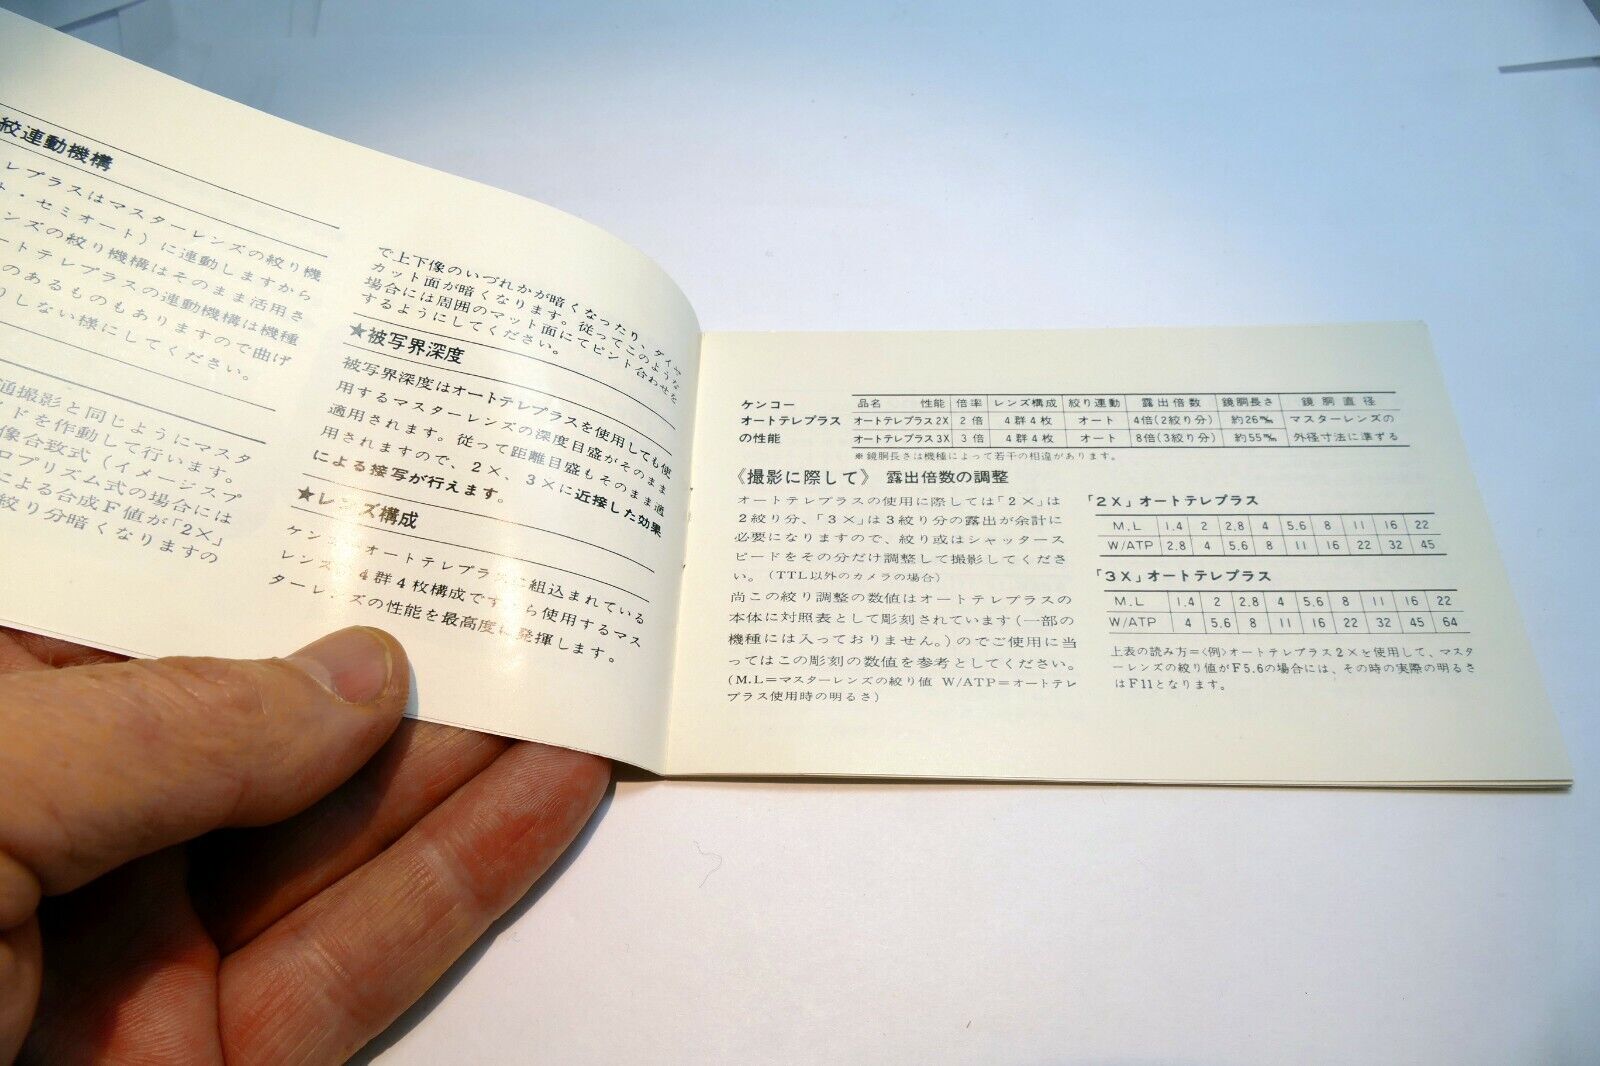 絞連動機構
レプラスはマスターレンズの絞り機
ト・セミオート）に連動しますから
ンズの絞り機構はそのまま活用さ
ートテレプラスの連動機構は機種
のあるものもありますので曲げ
りしない様にしてください。
通撮影と同じようにマスタ
イドを作動して行います。
像合致式（イメージスプ
ロプリズム式の場合には
による合成F値が「2×」
絞り分暗くなりますの
で上下像のいづれかが暗くなったり、ダイヤ
カット面が暗くなります。従ってこのような
場合には周囲のマット面にてピント合わせを
するようにしてください。
★被写界深度
被写界深度はオートテレプラスを使用しても使
用するマスターレンズの深度目盛がそのまま
適用されます。従って距離目盛もそのまま適
用されますので、2×、3×に近接した効果
による接写が行えます。
★レンズ構成
ケンコーオートテレプラスに組込まれている
レンズは4群4枚構成ですから使用するマス
ターレンズの性能を最高度に発揮します。
ケンコー
オートテレプラス
の性能
品名 性能 倍率 レンズ構成 絞り連動 露出倍数 鏡胴長さ 鏡胴直径
オートテレプラス2X 2倍 4群4枚 オート 4倍(2絞り分) 約26㎜ マスターレンズの
オートテレプラス3X 3倍 4群4枚 オート 8倍(3絞り分) 約55㎜ 外径寸法に準ずる
※鏡胴長さは機種によって若干の相違があります。
《撮影に際して》 露出倍数の調整
オートテレプラスの使用に際しては「2×」は
2絞り分、「3×」は3絞り分の露出が余計に
必要になりますので、絞り或はシャッタース
ピードをその分だけ調整して撮影してくださ
い。（TTL以外のカメラの場合）
尚この絞り調整の数値はオートテレプラスの
本体に対照表として彫刻されています（一部の
機種には入っておりません。）のでご使用に当
ってはこの彫刻の数値を参考としてください。
(M.L=マスターレンズの絞り値 W/ATP=オートテレ
プラス使用時の明るさ)
「2X」オートテレプラス
M.L 1.4 2 2.8 4 5.6 8 11 16 22
W/ATP 2.8 4 5.6 8 11 16 22 32 45
「3X」オートテレプラス
M.L 1.4 2 2.8 4 5.6 8 11 16 22
W/ATP 4 5.6 8 11 16 22 32 45 64
上表の読み方=〈例〉オートテレプラス2×を使用して、マスタ
ーレンズの絞り値がF5.6の場合には、その時の実際の明るさ
はF11となります。